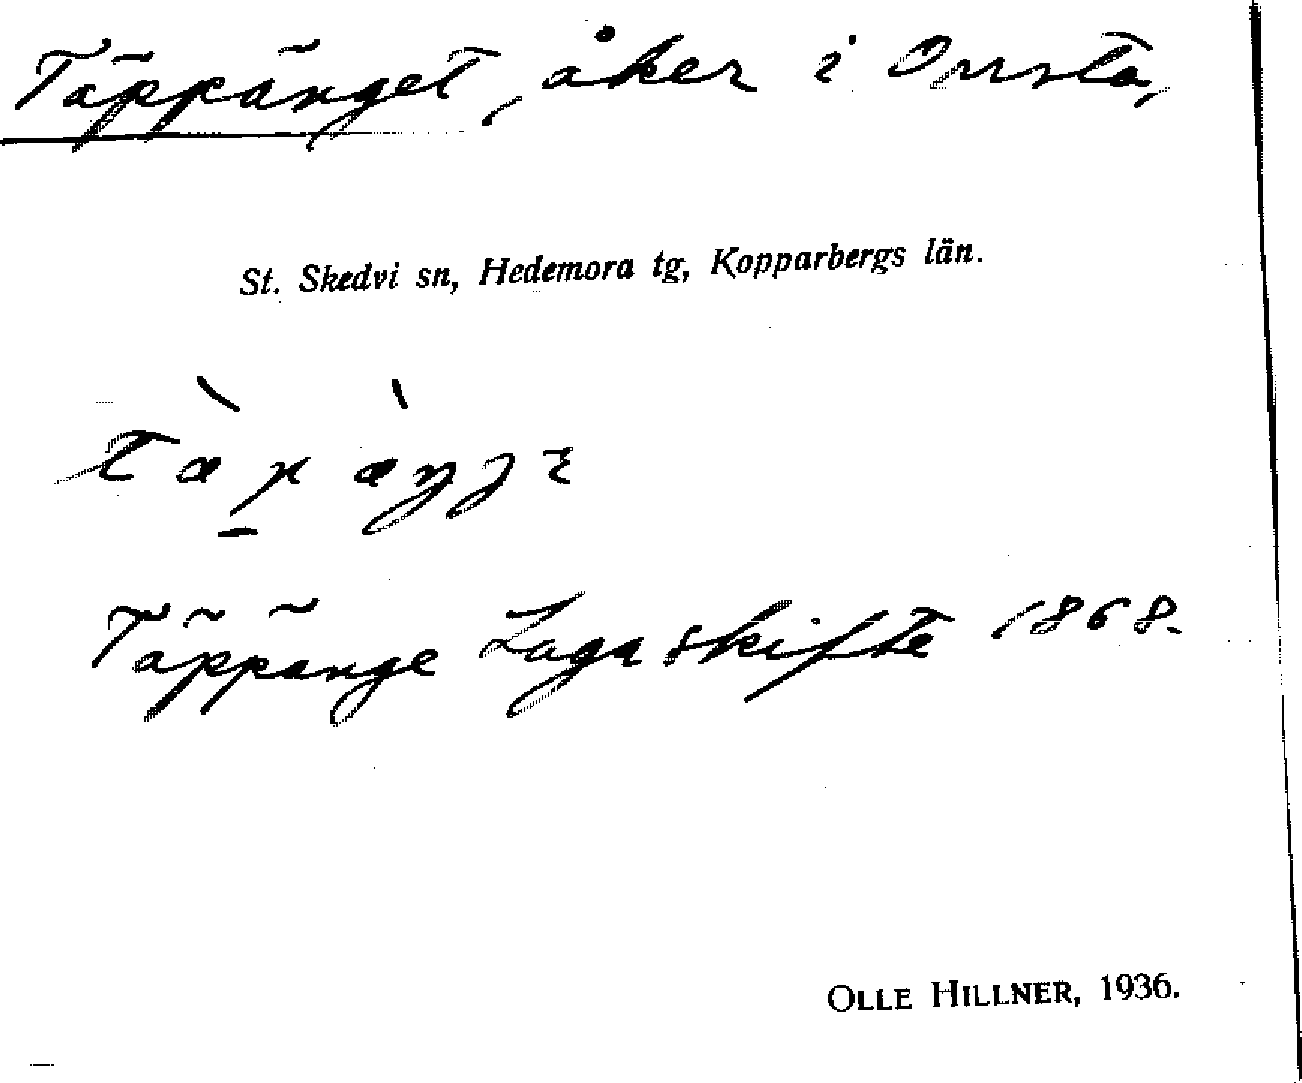 Täppänget, åker i Onsta,
St. Skedvi sn, Hedemora tg, Kopparbergs län.
Täppänge Laga skifte 1868.
OLLE HILLNER, 1936.